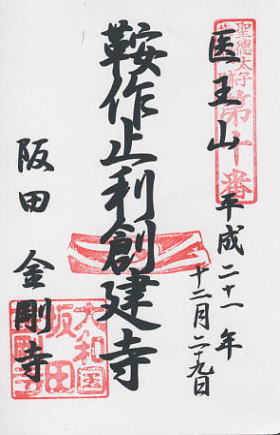 聖徳太子
第十番
医王山
平成二十一年
十二月二十九日
鞍作止利創建寺
阪田 金剛寺
大和国
阪田
金剛寺